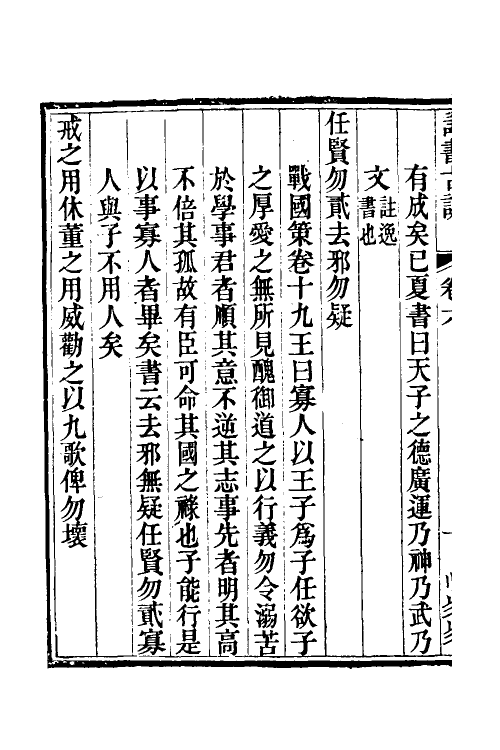 詩書古訓 卷六
有成矣已夏書曰天子之德廣運乃神乃武乃
文註逸書也
任賢勿貳去邪勿疑
戰國策卷十九王曰寡人以王子爲子任欲子
之厚愛之無所見醜御道之以行義勿令溺苦
於學事君者順其意不逆其志事先者明其高
不倍其孤故有臣可命其國之祿也子能行是
以事寡人者畢矣書云去邪無疑任賢勿貳寡
人與子不用人矣
戒之用休董之用威勸之以九歌俾勿壞